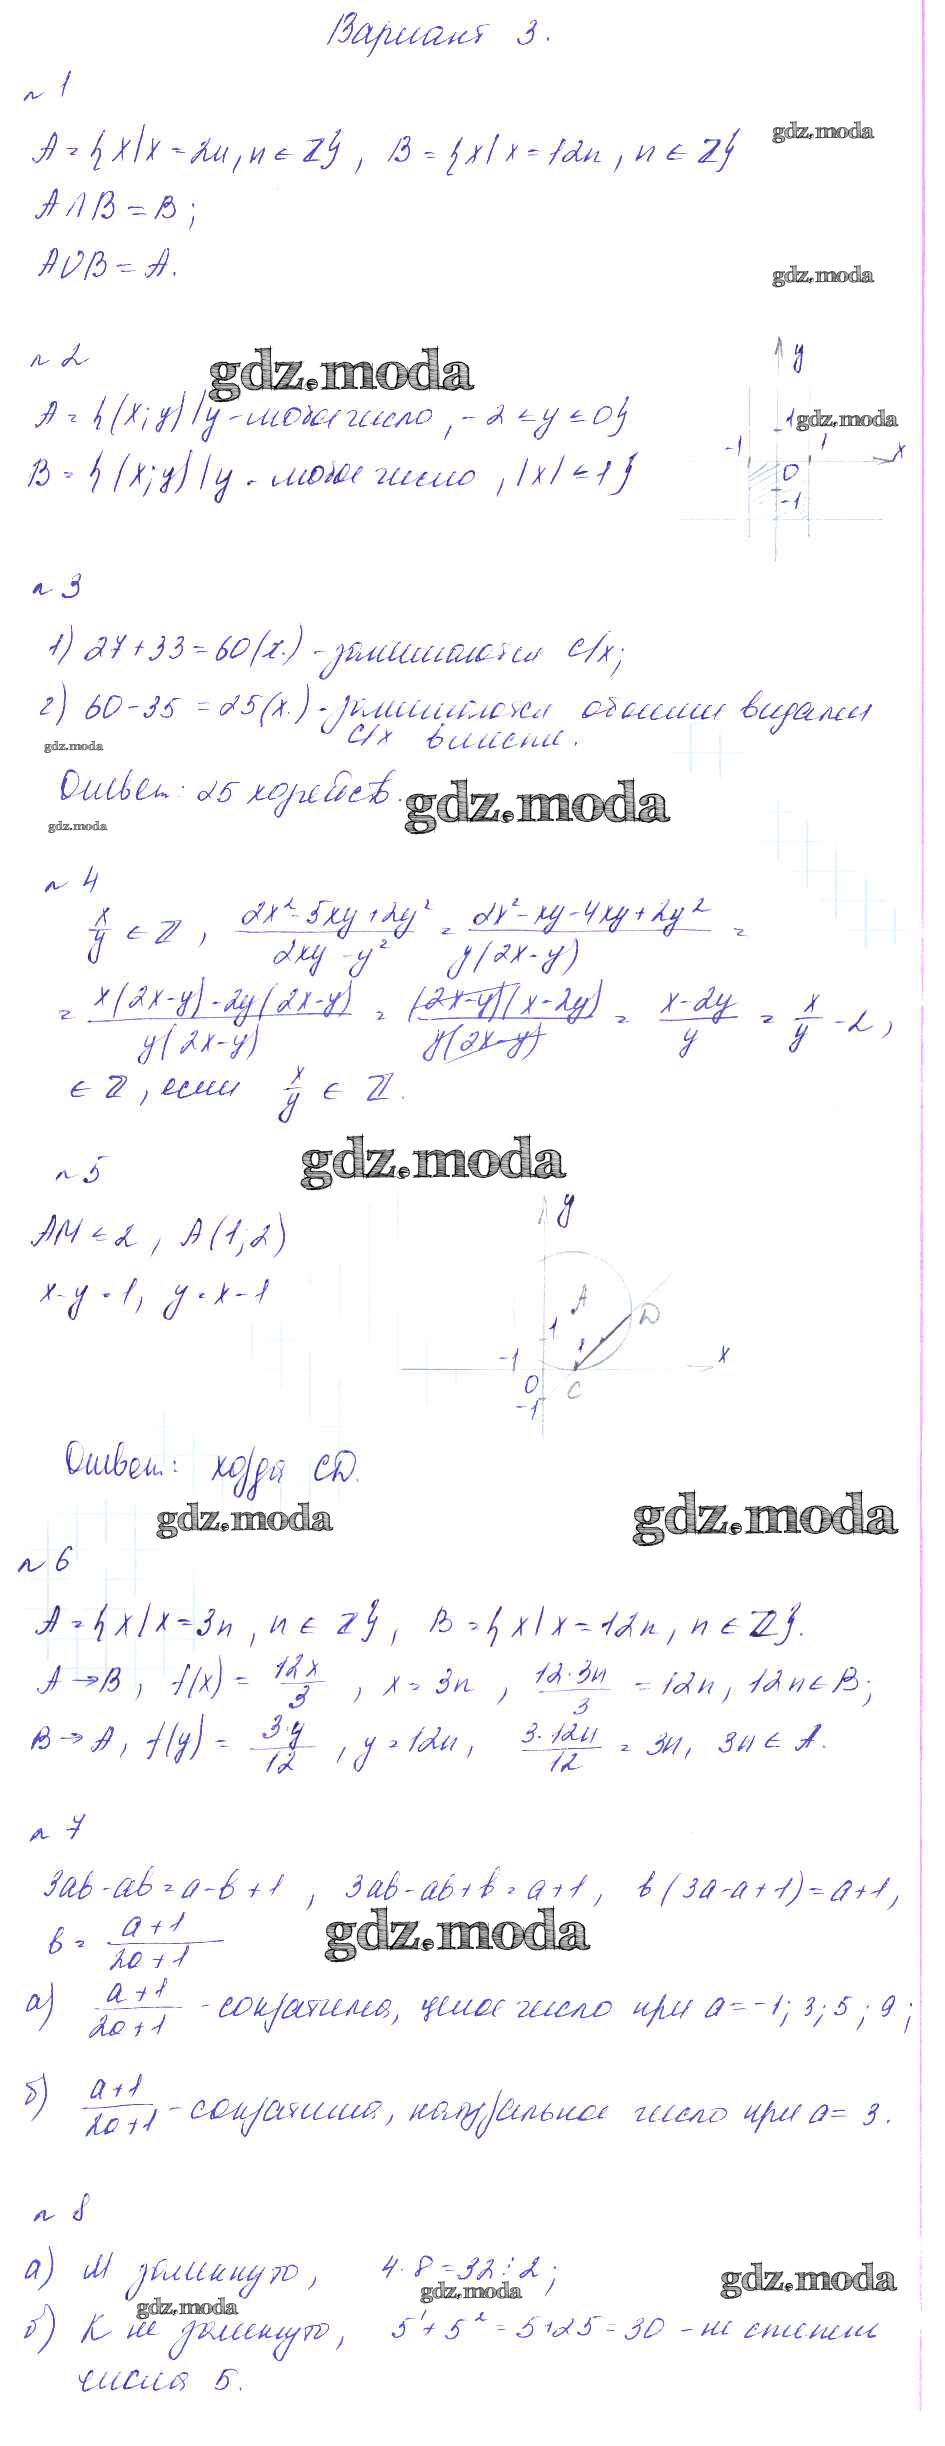 Вариант 3.
№ 1
A = {x | x = 2n, n ∈ Z}, B = {x | x = 12n, n ∈ Z}
gdz.moda
A ∩ B = B;
A ∪ B = A.
gdz.moda
№ 2
gdz.moda
A = {(x; y) | y - любое число, -2 ≤ y ≤ 0}
B = {(x; y) | y - любое число, |x| ≤ 1}
y
1
gdz.moda
-1 1 x
0
-1
№ 3
1) 27 + 33 = 60 (х.) - занимаются с/х;
2) 60 - 35 = 25 (х.) - занимаются обоими видами
с/х вместе.
gdz.moda
Ответ: 25 хозяйств.
gdz.moda
gdz.moda
№ 4
x/y ∈ Z, (2x² - 5xy + 2y²)/(2xy - y²) = (2x² - xy - 4xy + 2y²)/(y(2x - y)) =
= (x(2x - y) - 2y(2x - y))/(y(2x - y)) = ((2x - y)(x - 2y))/(y(2x - y)) = (x - 2y)/y = x/y - 2,
∈ Z, если x/y ∈ Z.
gdz.moda
№ 5
AM ≤ 2, A(1; 2)
x - y = 1, y = x - 1
y
A
D
1
-1
x
0
C
-1
Ответ: хорда CD.
gdz.moda
gdz.moda
№ 6
A = {x | x = 3n, n ∈ Z}, B = {x | x = 12n, n ∈ Z}.
A → B, f(x) = 12x/3, x = 3n, 12·3n/3 = 12n, 12n ∈ B;
B → A, f(y) = 3·y/12, y = 12n, 3·12n/12 = 3n, 3n ∈ A.
№ 7
3ab - ab = a - b + 1, 3ab - ab + b = a + 1, b(3a - a + 1) = a + 1,
b = (a + 1)/(2a + 1)
gdz.moda
а) (a + 1)/(2a + 1) - сократима, целое число при a = -1; 3; 5; 9;
б) (a + 1)/(2a + 1) - сократима, натуральное число при a = 3.
№ 8
а) M замкнуто, 4·8 = 32 ⋮ 2;
gdz.moda
gdz.moda
gdz.moda
б) K не замкнуто, 5¹ + 5² = 5 + 25 = 30 - не степень
числа 5.